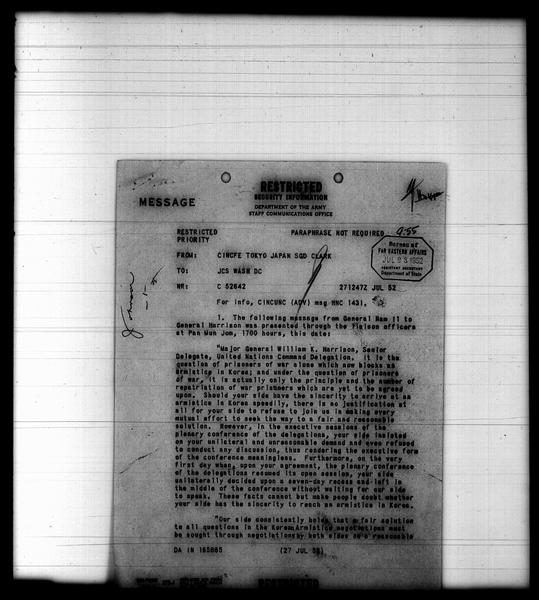 RESTRICTED
SECURITY INFORMATION
DEPARTMENT OF THE ARMY
STAFF COMMUNICATIONS OFFICE
MESSAGE
RESTRICTED PARAPHRASE NOT REQUIRED
PRIORITY
Bureau of
FAR EASTERN AFFAIRS
JUL 28 1952
Department of State
FROM: CINCFE TOKYO JAPAN SGD CLARK
TO: JCS WASH DC
NR: C 52642 271247Z JUL 52
Johnson
-1-
For info, CINCUNC (ADV) msg HNC 1431,
1. The following message from General Nam Il to
General Harrison was presented through the liaison officers
at Pan Mun Jom, 1700 hours, this date:
"Major General William K. Harrison, Senior
Delegate, United Nations Command Delegation. It is the
question of prisoners of war alone which now blocks an
armistice in Korea; and under the question of prisoners
of war, it is actually only the principle and the number of
repatriation of war prisoners which are yet to be agreed
upon. Should your side have the sincerity to arrive at an
armistice in Korea speedily, there is no justification at
all for your side to refuse to join us in making every
mutual effort to seek the way to a fair and reasonable
solution. However, in the executive sessions of the
plenary conference of the delegations, your side insisted
on your unilateral and unreasonable demand and even refused
to conduct any discussion, thus rendering the executive form
of the conference meaningless. Furthermore, on the very
first day when, upon your agreement, the plenary conference
of the delegations resumed its open session, your side
unilaterally decided upon a seven-day recess and left in
the middle of the conference without waiting for our side
to speak. These facts cannot but make people doubt whether
your side has the sincerity to reach an armistice in Korea.
"Our side consistently holds that a fair solution
to all questions in the Korean Armistice negotiations must
be sought through negotiations by both sides on a reasonable
DA IN 165865 (27 JUL 52)
RESTRICTED